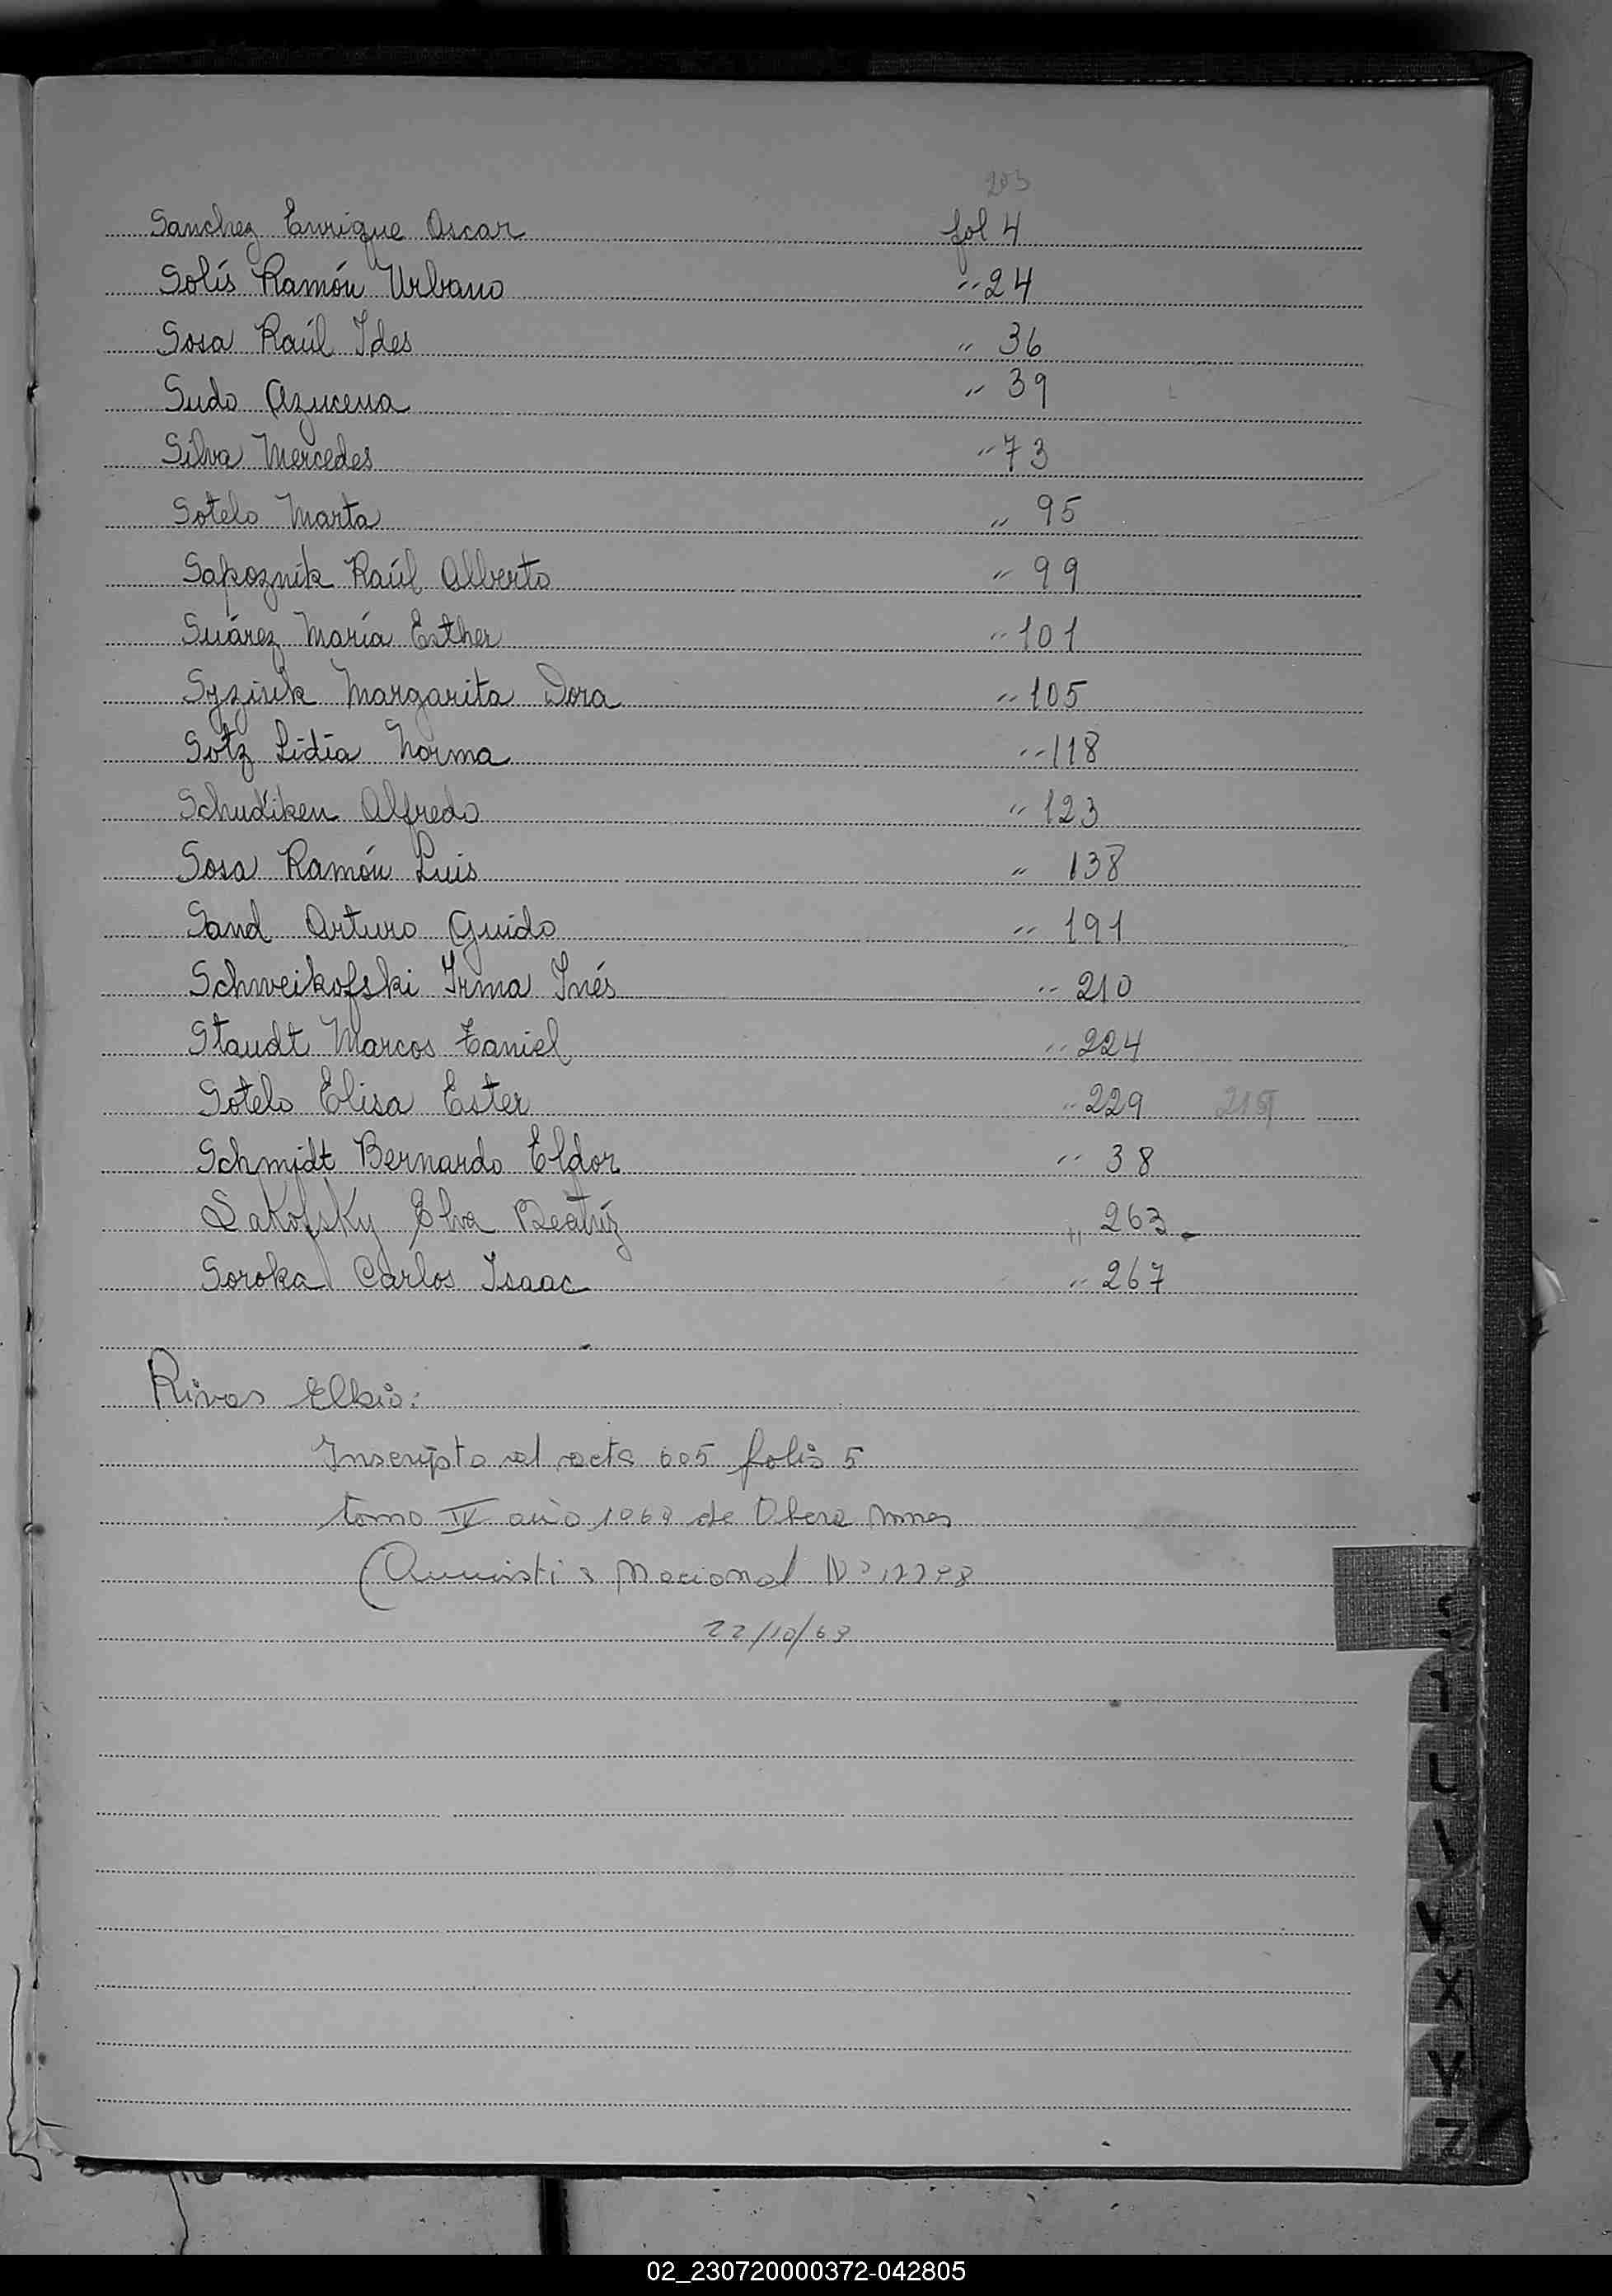 203
Sanchez Enrique Oscar fol 4
Solís Ramón Urbano " 24
Sosa Raúl Ides " 36
Sudo Azucena " 39
Silva Mercedes " 73
Sotelo Marta " 95
Sapoznik Raúl Alberto " 99
Suárez María Esther " 101
Margarita Dora " 105
Sotz Lidia Norma " 118
Schudiken Alfredo " 123
Sosa Ramón Luis " 138
Sand Arturo Guido " 191
Schweikofski Irma Inés " 210
Staudt Marcos Daniel " 224
Sotelo Elisa Ester " 229
Schmidt Bernardo Eldor " 38
Sakofsky Elva Beatríz " 263.-
Soroka Carlos Isaac " 267
Rivas Elbio:
Inscripto al acta 605 folio 5
tomo IV año 1969 de Obera Mnes
(Amnistia Nacional Nº
22/10/69
X
Y
Z
02_230720000372-042805